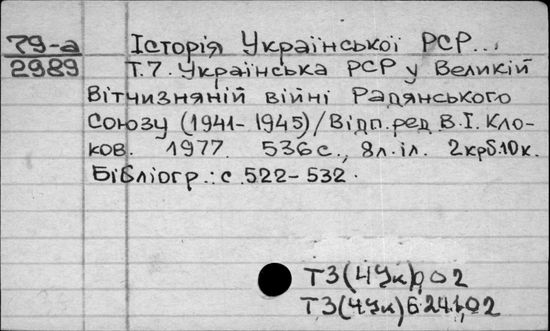 79-а Історія Української РСР...
2989 Т.7. Українська РСР у Великій
Вітчизняній війні Радянського
Союзу (1941-1945)/Відп.ред В.І. Кло-
ков. 1977. 536с., 8л.іл. 2крб.10к.
Бібліогр.: с. 522-532.
Т3(4Ук)
Т3(4Ук)624